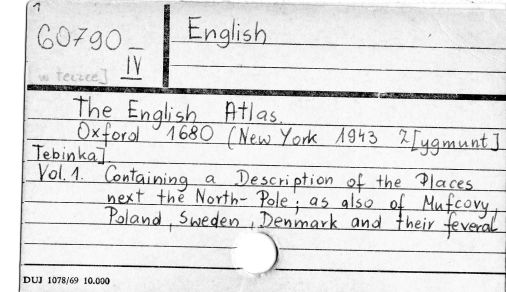 1
60790
IV
w teczce]
English
The English Atlas.
Oxford 1680 (New York 1943 Z[ygmunt]
Tebinka]
Vol. 1. Containing a Description of the Places
next the North-Pole; as also of Mufcovy,
Poland, Sweden, Denmark and their feveral
DUJ 1078/69 10.000